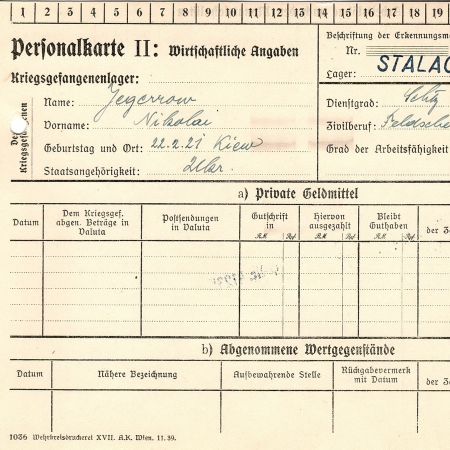 1 2 3 4 5 6 7 8 9 10 11 12 13 14 15 16 17 18 19
Personalkarte II: Wirtschaftliche Angaben
Beschriftung der Erkennungsm
Nr.
Kriegsgefangenenlager:
Lager: STALAG
Des Kriegsgefangenen
Name: Jegerrow
Dienstgrad: Schtz
Vorname: Nikolai
Zivilberuf: Feldsche
Geburtstag und Ort: 22.2.21 Kiew
Grad der Arbeitsfähigkeit
Staatsangehörigkeit: Ukr.
a) Private Geldmittel
Datum
Dem Kriegsgef. abgen. Beträge in Valuta
Postsendungen in Valuta
Gutschrift in
RM Rpf
Hiervon ausgezahlt
RM Rpf
Bleibt Guthaben
RM Rpf
der Za
b) Abgenommene Wertgegenstände
Datum
Nähere Bezeichnung
Aufbewahrende Stelle
Rückgabevermerk mit Datum
der Za
1036 Wehrkreisdruckerei XVII. A.K. Wien. 11.39.